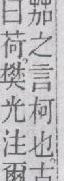 茄之言柯也古
曰荷樊光注爾